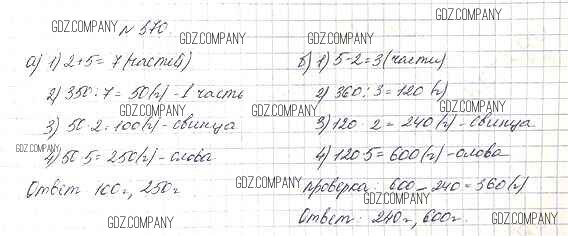 GDZ.COMPANY
№ 570.
GDZ.COMPANY
GDZ.COMPANY
GDZ.COMPANY
а) 1) 2+5=7 (частей)
2) 350:7=50(г)-1 часть
GDZ.COMPANY
3) 50·2=100(г)-свинца
GDZ.COMPANY
4) 50·5=250(г)-олова
Ответ 100г, 250г
GDZ.COMPANY
б) 1) 5-2=3(части)
2) 360:3=120 (г)
GDZ.COMPANY
GDZ.COMPANY
3) 120·2=240(г)-свинца
4) 120·5=600(г)-олова
GDZ.COMPANY
проверка: 600-240=360(г)
GDZ.COMPANY
Ответ: 240г, 600г.
GDZ.COMPANY